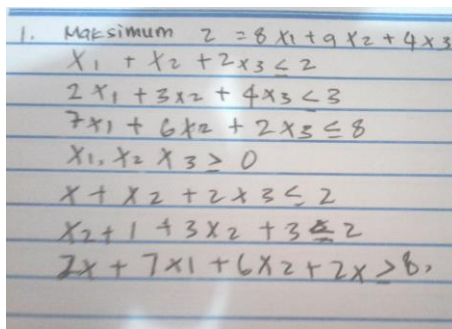 1. Maksimum z = 8x1 + 9x2 + 4x3
x1 + x2 + 2x3 ≤ 2
2x1 + 3x2 + 4x3 ≤ 3
7x1 + 6x2 + 2x3 ≤ 8
x1, x2 x3 ≥ 0
x + x2 + 2x3 ≤ 2
x2 + 1 + 3x2 + 3 ≤ 2
2x + 7x1 + 6x2 + 2x ≥ 8,